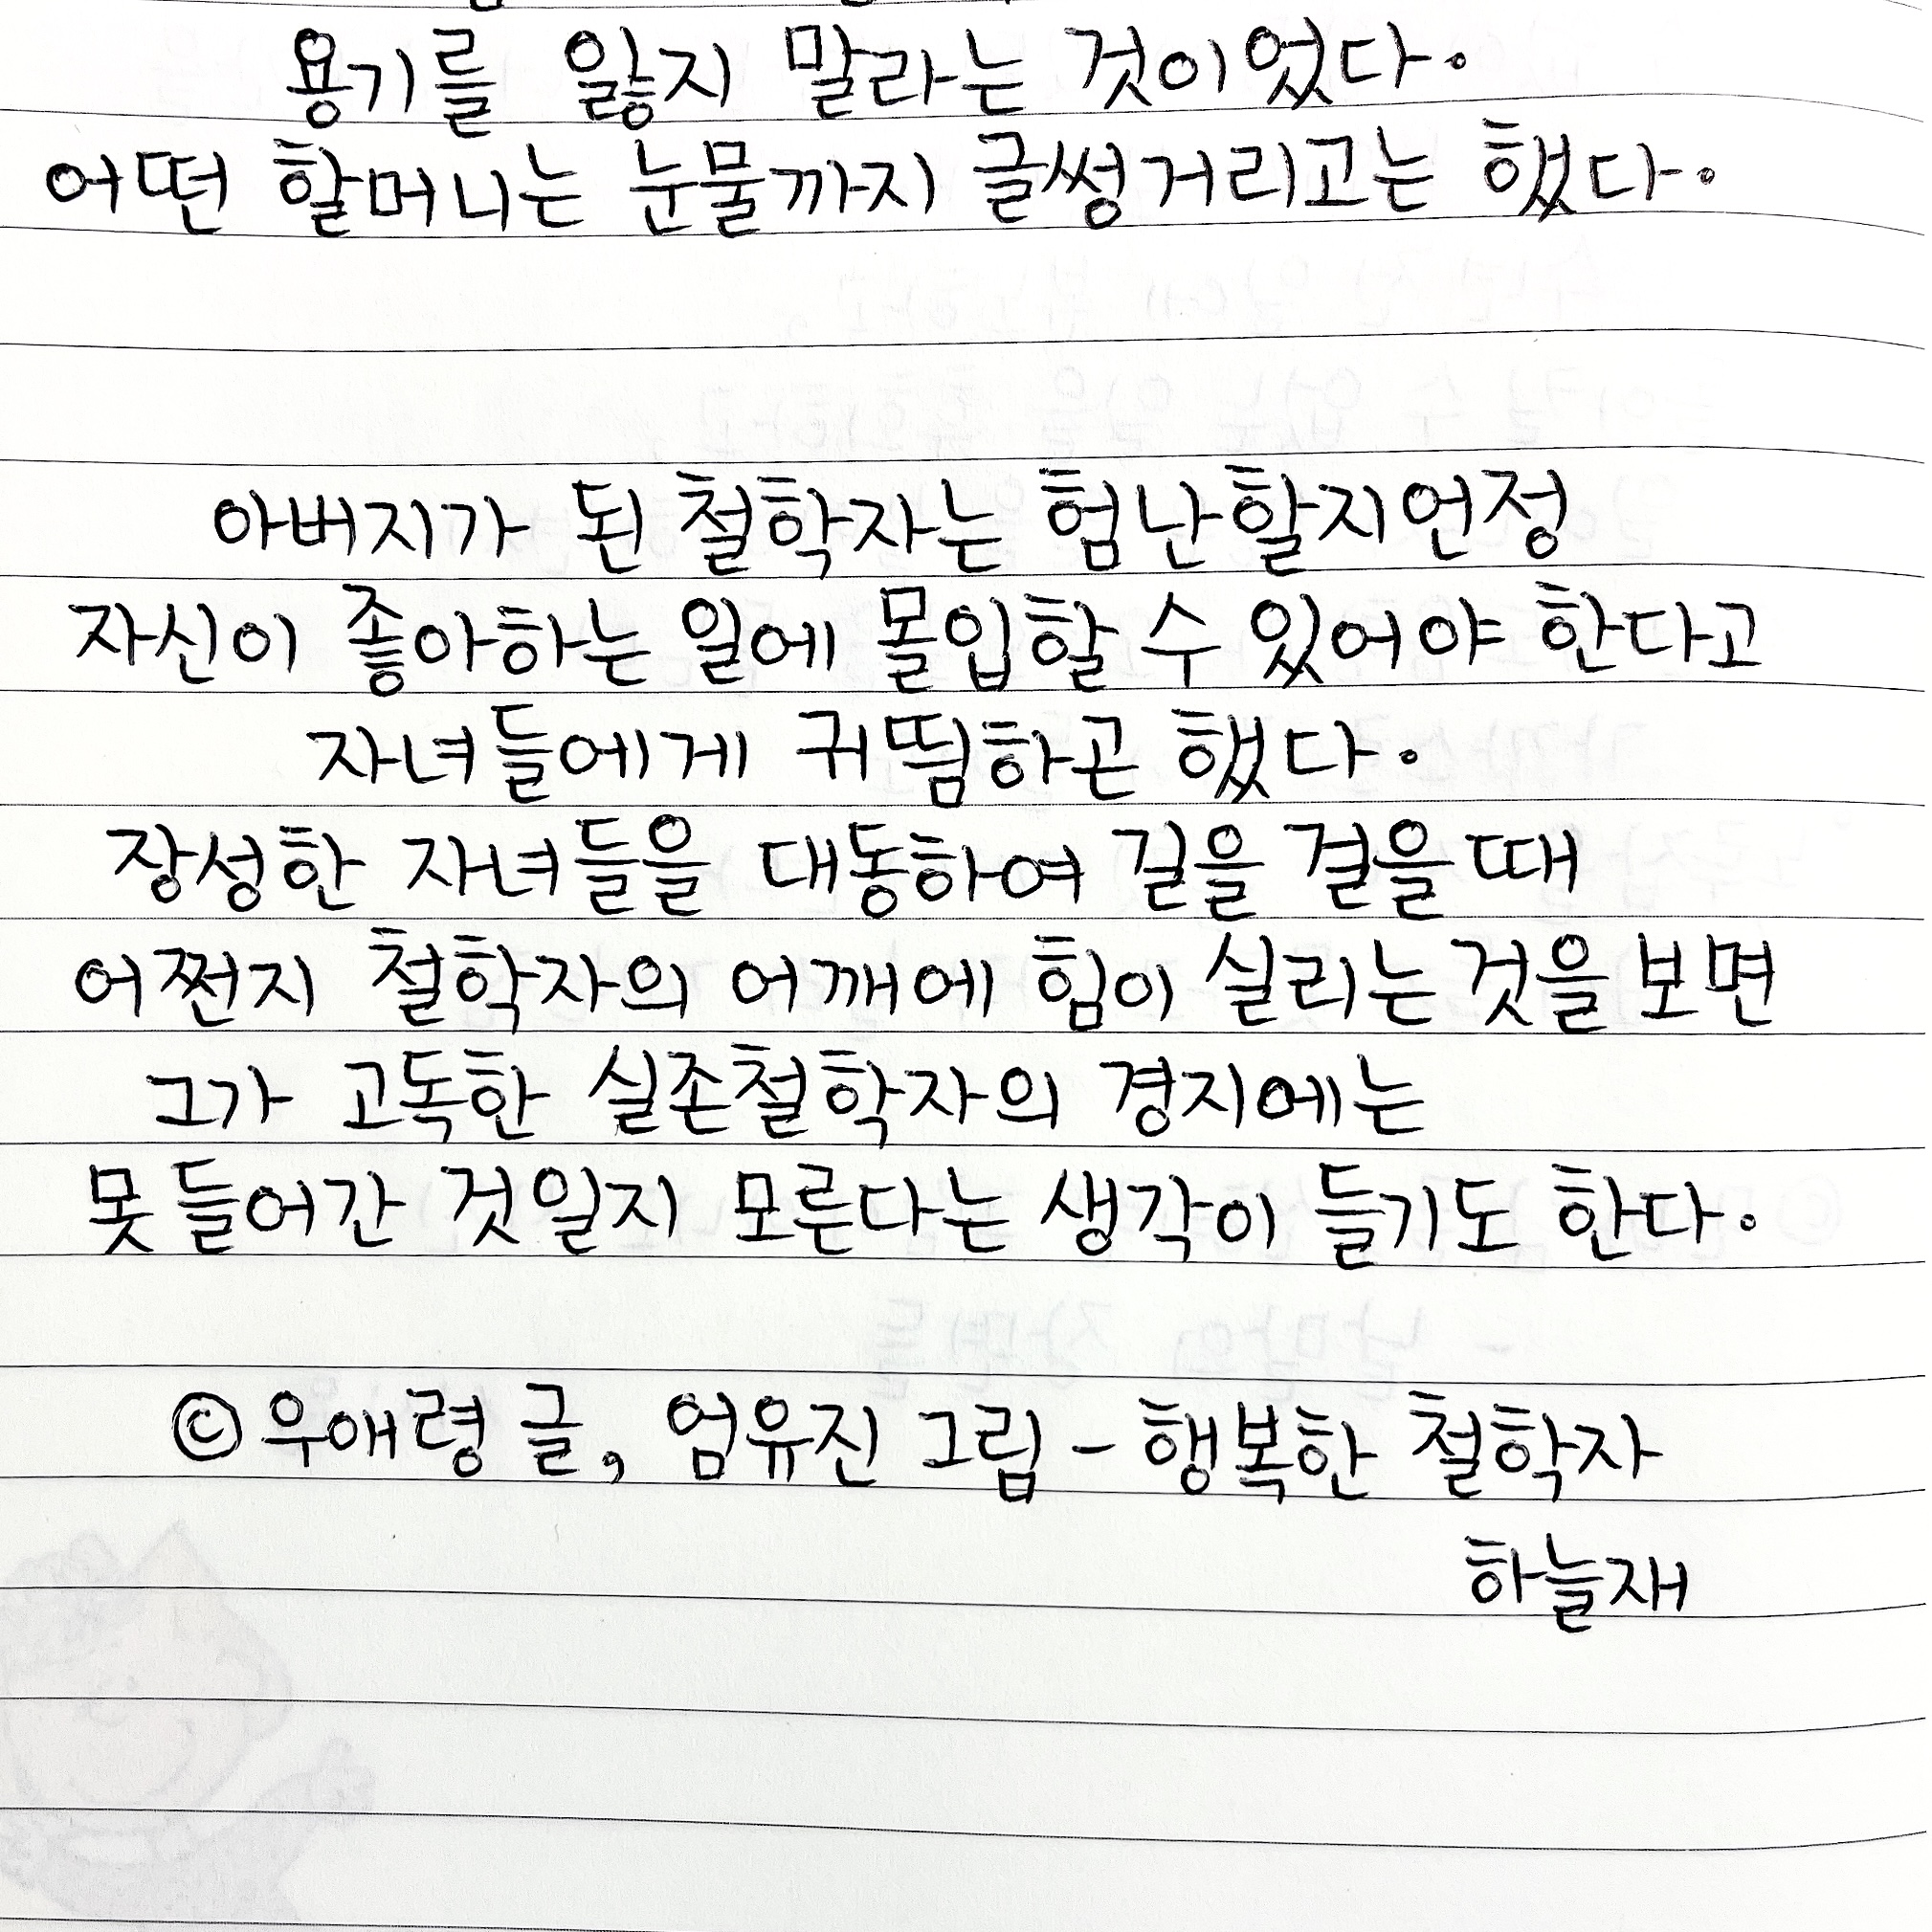 용기를 잃지 말라는 것이었다.
어떤 할머니는 눈물까지 글썽거리고는 했다.
아버지가 된 철학자는 험난할지언정
자신이 좋아하는 일에 몰입할 수 있어야 한다고
자녀들에게 귀띔하곤 했다.
장성한 자녀들을 대동하여 길을 걸을 때
어쩐지 철학자의 어깨에 힘이 실리는 것을 보면
그가 고독한 실존철학자의 경지에는
못 들어간 것일지 모른다는 생각이 들기도 한다.
©우애령 글, 엄유진 그림 - 행복한 철학자
하늘재